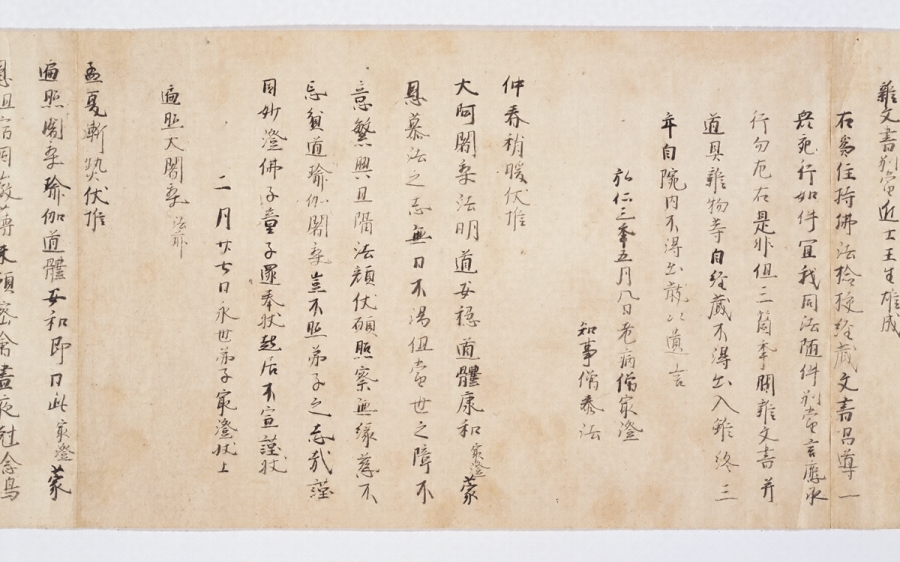 雜文書別當近士壬生雄成
右爲住持佛法撿挍經藏文書唱導一
衆宛行如件宜我同法隨件別當言應承
行勿厄右是非但三箇年間雜文書并
道具雜物等自經藏不得出入雖終三
年自院内不得出散以遺言
弘仁三年五月八日老病僧最澄
知事僧泰法
仲春稍暖伏惟
大阿闍梨法明道安穩道體康和最澄蒙
恩慕法之志無日不渴但當世之障不
意繁興且隔法顔伏願照察無緣慈不
忘貧道瑜伽闍梨豈不照弟子之志哉謹
因妙澄佛子童子還奉狀起居不宣謹狀
二月廿七日永世弟子最澄狀上
遍照大闍梨 法前
孟夏漸熱伏惟
遍照闍梨瑜伽道體安和即日此最澄蒙
恩且宿因